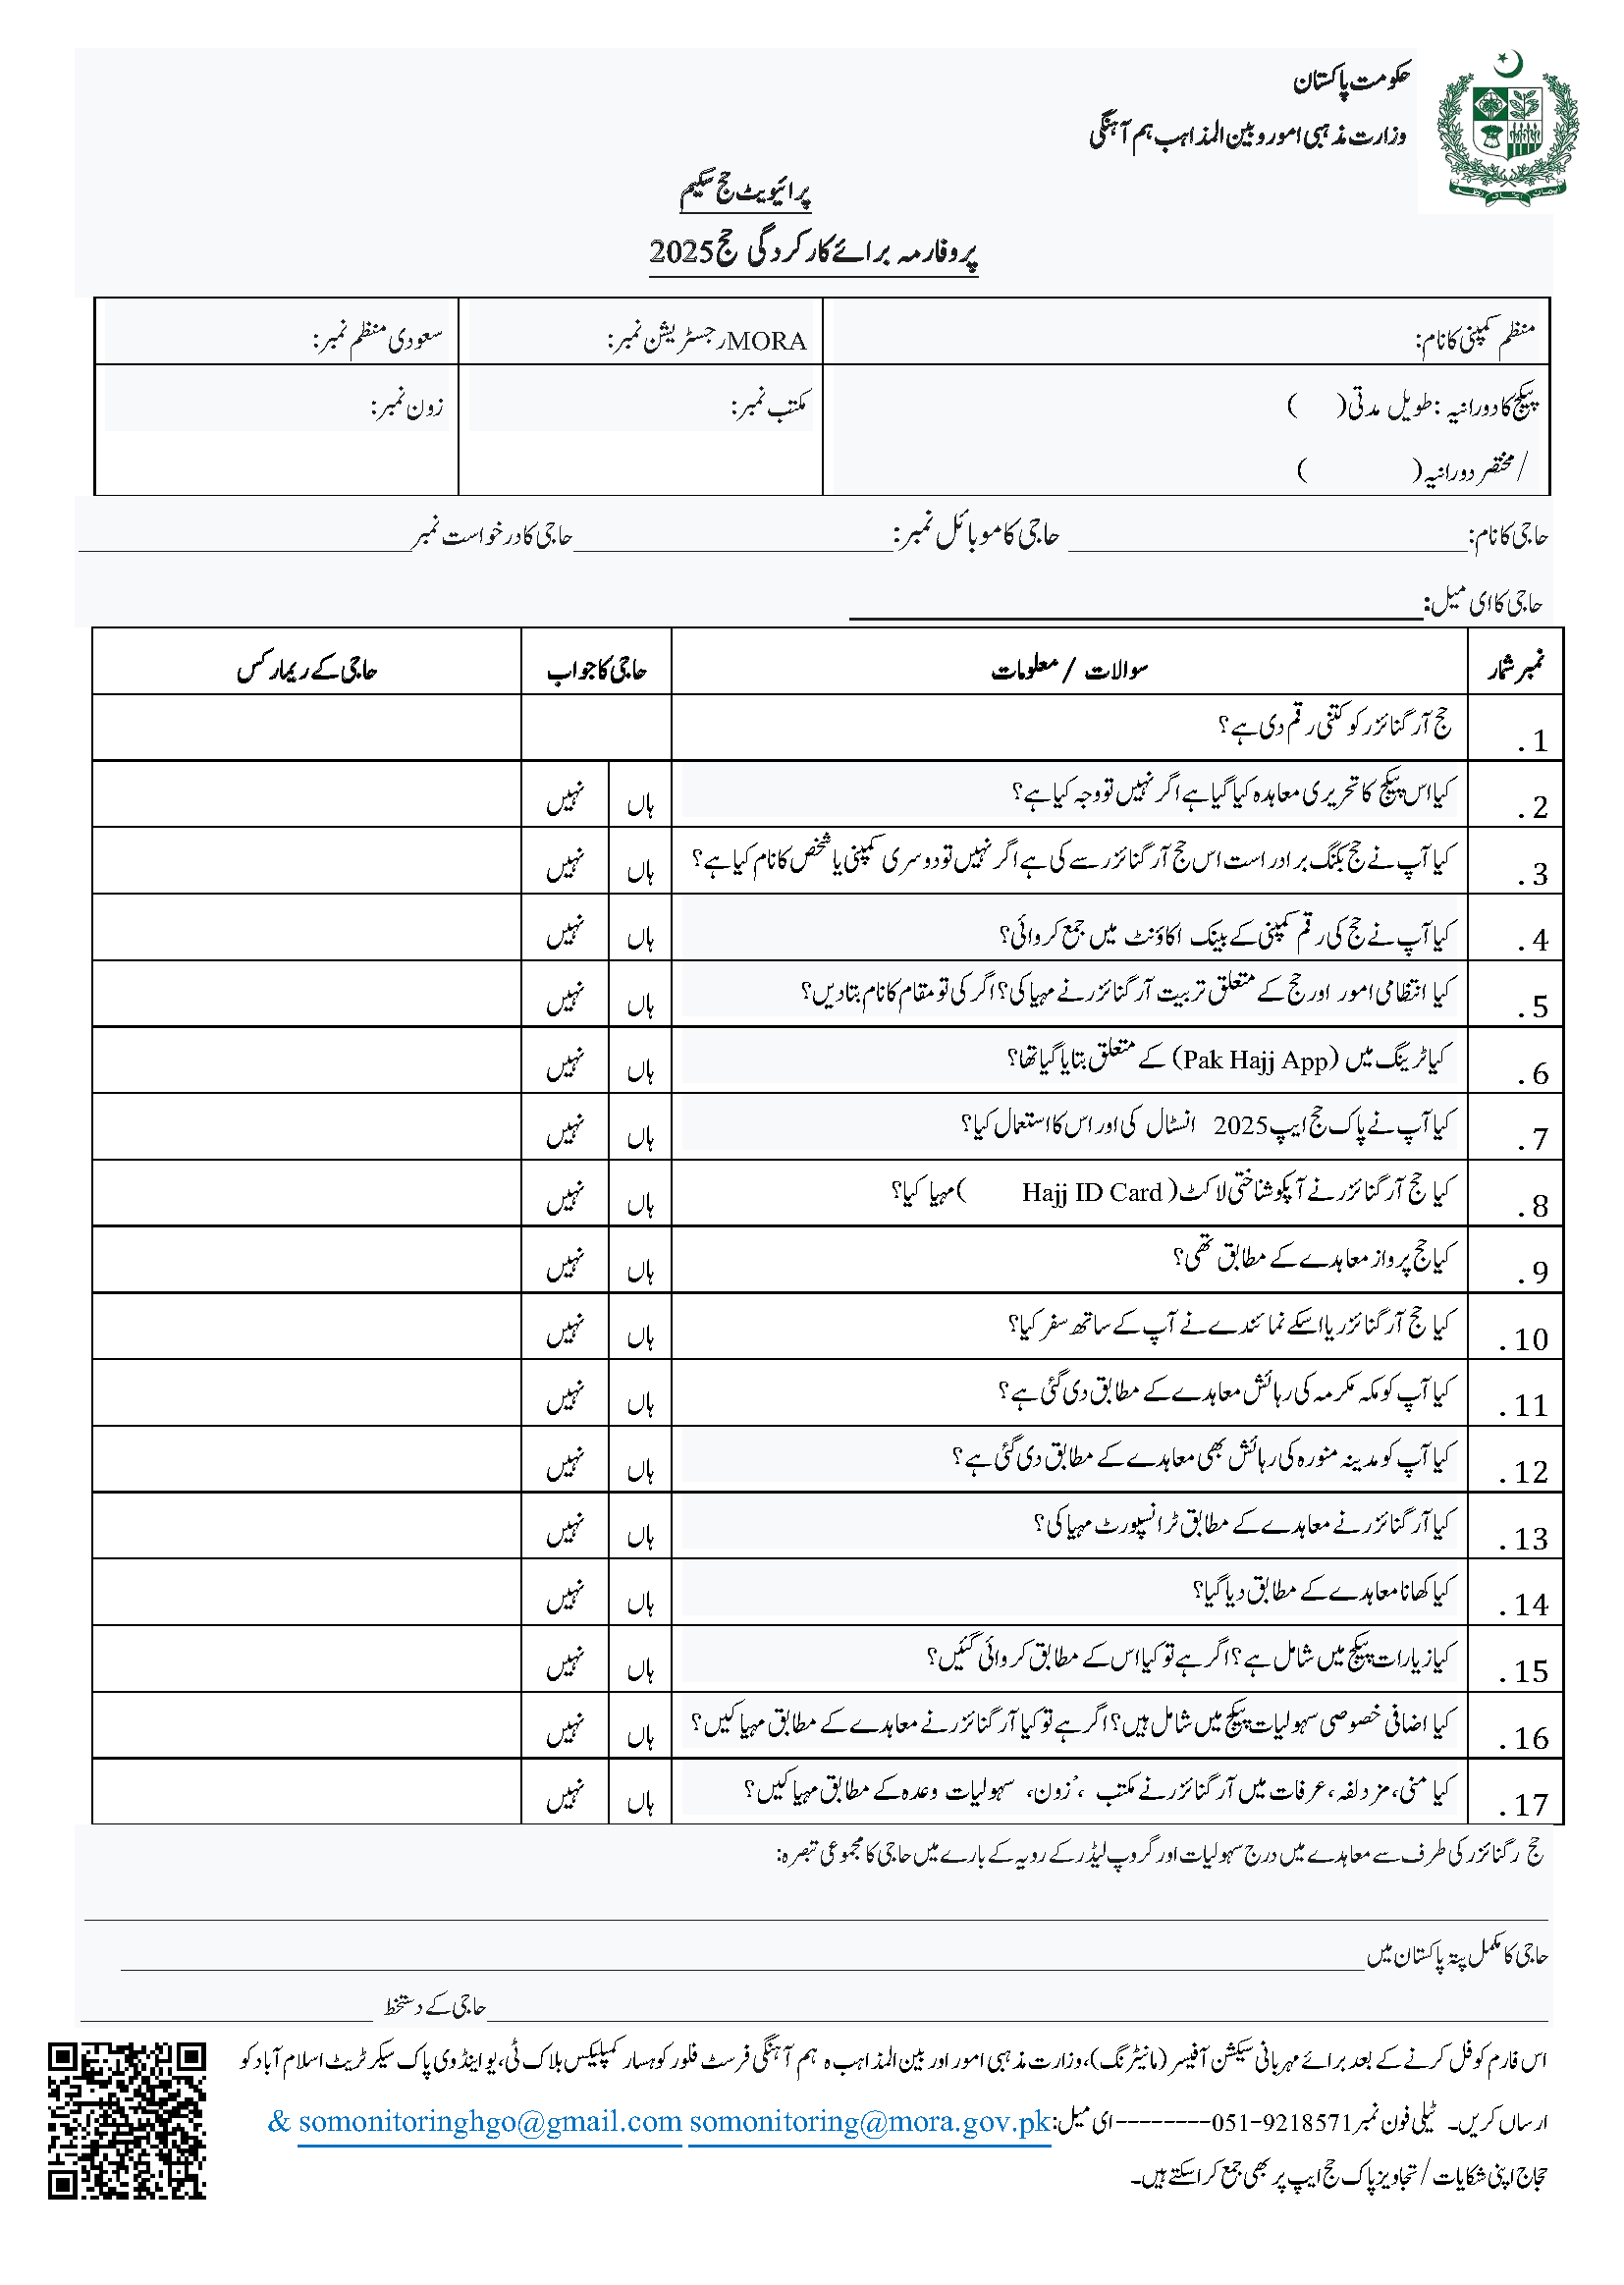 حکومت پاکستان
وزارت مذہبی امور و بین المذاہب ہم آہنگی
پرائیویٹ حج سکیم
پروفارمہ برائے کارکردگی حج 2025
منظم کمپنی کا نام: MORA رجسٹریشن نمبر: سعودی منظم نمبر:
پیکج کا دورانیہ: طویل مدتی( ) مکتب نمبر: زون نمبر:
/ مختصر دورانیہ( )
حاجی کا نام: حاجی کا موبائل نمبر: حاجی کا درخواست نمبر
حاجی کا ای میل:
نمبر شمار سوالات / معلومات حاجی کا جواب حاجی کے ریمارکس
1. حج آرگنائزر کو کتنی رقم دی ہے؟
2. کیا اس پیکج کا تحریری معاہدہ کیا گیا ہے اگر نہیں تو وجہ کیا ہے؟ ہاں نہیں
3. کیا آپ نے حج بکنگ براہ راست اس حج آرگنائزر سے کی ہے اگر نہیں تو دوسری کمپنی یا شخص کا نام کیا ہے؟ ہاں نہیں
4. کیا آپ نے حج کی رقم کمپنی کے بینک اکاؤنٹ میں جمع کروائی؟ ہاں نہیں
5. کیا انتظامی امور اور حج کے متعلق تربیت آرگنائزر نے مہیا کی؟ اگر کی تو مقام کا نام بتا دیں؟ ہاں نہیں
6. کیا ٹریننگ میں (Pak Hajj App) کے متعلق بتایا گیا تھا؟ ہاں نہیں
7. کیا آپ نے پاک حج ایپ 2025 انسٹال کی اور اس کا استعمال کیا؟ ہاں نہیں
8. کیا حج آرگنائزر نے آپکو شناختی لاکٹ( Hajj ID Card )مہیا کیا؟ ہاں نہیں
9. کیا حج پرواز معاہدے کے مطابق تھی؟ ہاں نہیں
10. کیا حج آرگنائزر یا اسکے نمائندے نے آپ کے ساتھ سفر کیا؟ ہاں نہیں
11. کیا آپ کو مکہ مکرمہ کی رہائش معاہدے کے مطابق دی گئی ہے؟ ہاں نہیں
12. کیا آپ کو مدینہ منورہ کی رہائش بھی معاہدے کے مطابق دی گئی ہے؟ ہاں نہیں
13. کیا آرگنائزر نے معاہدے کے مطابق ٹرانسپورٹ مہیا کی؟ ہاں نہیں
14. کیا کھانا معاہدے کے مطابق دیا گیا؟ ہاں نہیں
15. کیا زیارات پیکج میں شامل ہے؟ اگر ہے تو کیا اس کے مطابق کروائی گئیں؟ ہاں نہیں
16. کیا اضافی خصوصی سہولیات پیکج میں شامل ہیں؟ اگر ہے تو کیا آرگنائزر نے معاہدے کے مطابق مہیا کیں؟ ہاں نہیں
17. کیا منی، مزدلفہ، عرفات میں آرگنائزر نے مکتب ،ُ زون، سہولیات وعدہ کے مطابق مہیا کیں؟ ہاں نہیں
حج رگنائزر کی طرف سے معاہدے میں درج سہولیات اور گروپ لیڈر کے رویہ کے بارے میں حاجی کا مجموعی تبصرہ:
حاجی کا مکمل پتہ پاکستان میں
حاجی کے دستخط
اس فارم کو فل کرنے کے بعد برائے مہربانی سیکشن آفیسر (مانیٹرنگ)، وزارت مذہبی امور اور بین المذاہب ہ ہم آہنگی فرسٹ فلور کوہسار کمپلیکس بلاک ٹی، یو اینڈ وی پاک سیکرٹریٹ اسلام آباد کو
ارسال کریں۔ ٹیلی فون نمبر 051-9218571--------ای میل: somonitoring@mora.gov.pk somonitoringhgo@gmail.com &
حجاج اپنی شکایات / تجاویز پاک حج ایپ پر بھی جمع کرا سکتے ہیں۔